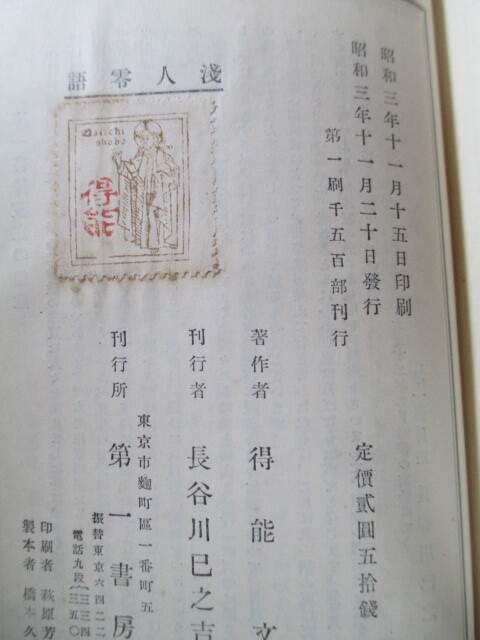 昭和三年十一月十五日印刷
昭和三年十一月二十日發行
第一刷千五百部刊行
淺人零語
Daiichi
shobo
得能
定價貳圓五拾錢
著作者 得能文
刊行者 長谷川巳之吉
刊行所 第一書房
東京市麴町區一番町五
振替東京六四二二
電話九段
印刷者 萩原芳
製本者 橋本久